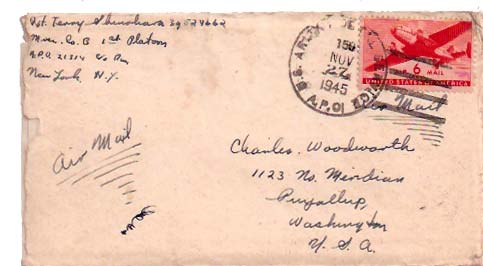 Pvt. Terry Shinohara 39 924662
1st Platoon
A.P.O. 21314 % P.M.
New York, N.Y.
U.S. ARMY POSTAL SERVICE
150
NOV
27
1945
A.P.O.
6
AIR MAIL
UNITED STATES OF AMERICA
Air Mail
Air Mail
Charles Woodworth
1123 No. Meridian
Puyallup,
Washington
U.S.A.